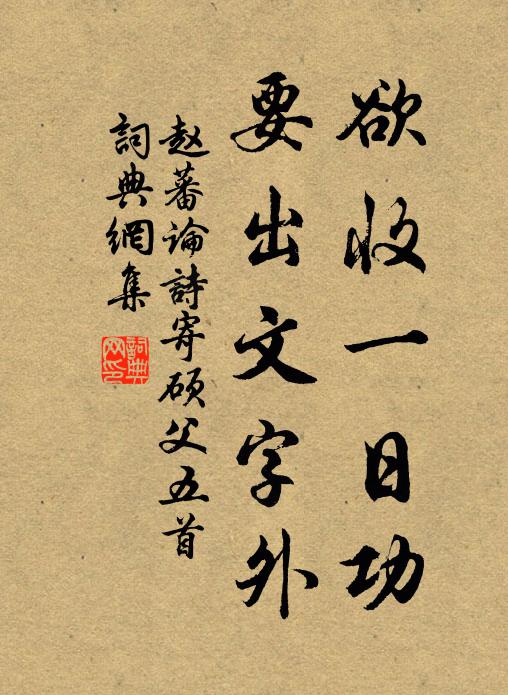 欲收一日功
要出文字外
赵蕃論詩寄碩父五首
詞典網集
詞典网印